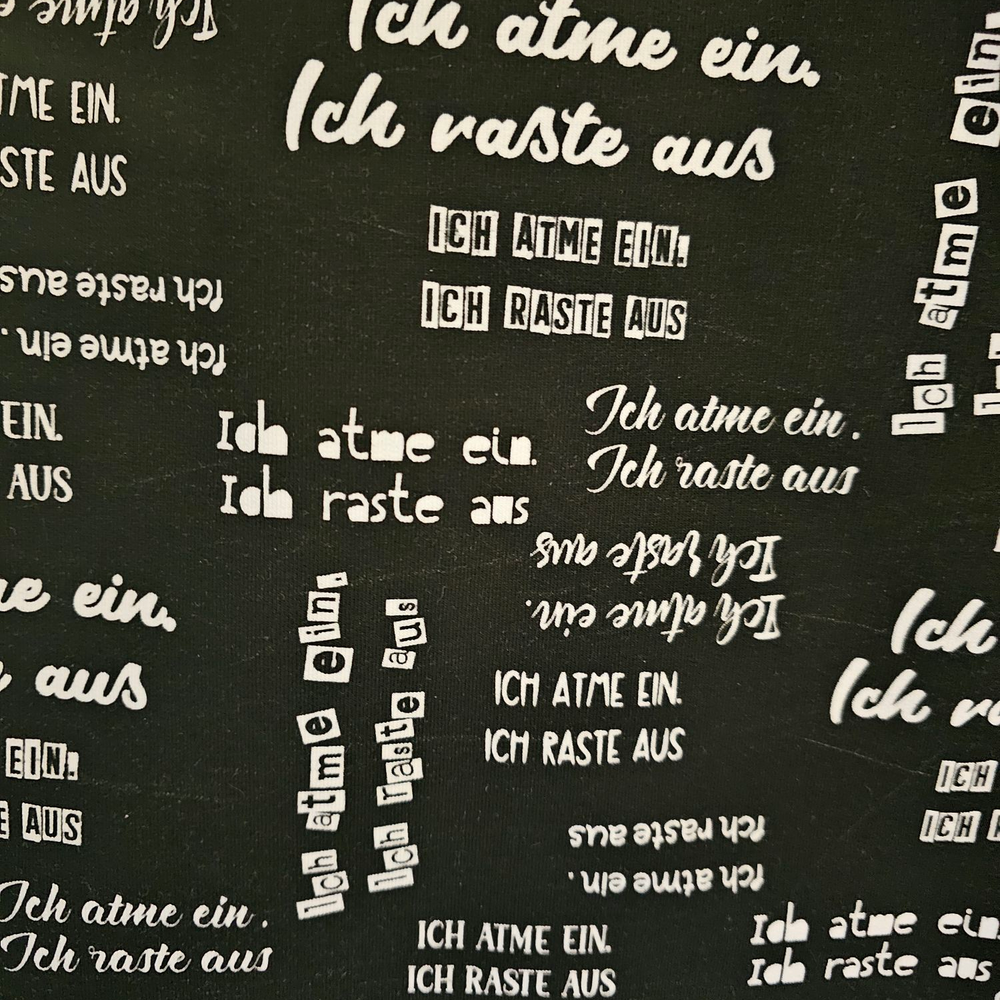 Ich atme
Ich atme ein.
Ich raste aus
ATME EIN.
RASTE AUS
ICH ATME EIN.
ICH RASTE AUS
Ich atme ein.
Ich
Ich atme ein.
Ich raste aus
EIN.
AUS
Ich atme ein.
Ich raste aus
Ich atme ein.
Ich raste aus
Ich atme ein.
Ich raste aus
ein.
aus
Ich atme ein.
Ich raste aus
ICH ATME EIN.
ICH RASTE AUS
Ich
Ich
EIN.
AUS
ICH
ICH
Ich atme ein.
Ich raste aus
Ich atme ein.
Ich raste aus
ICH ATME EIN.
ICH RASTE AUS
Ich atme ein.
Ich raste aus